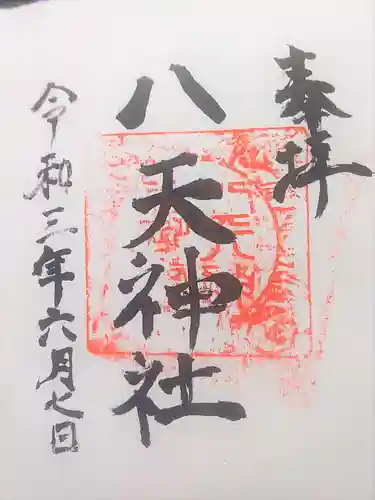 奉拝
八天神社
令和三年六月七日